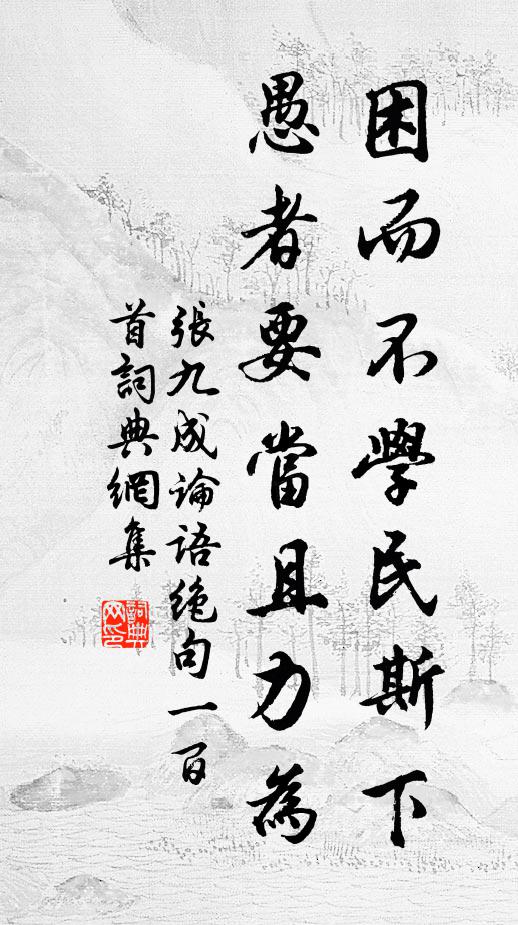 困而不學民斯下
愚者要當且力為
張九成論语绝句一百
首詞典網集
詞典
网印